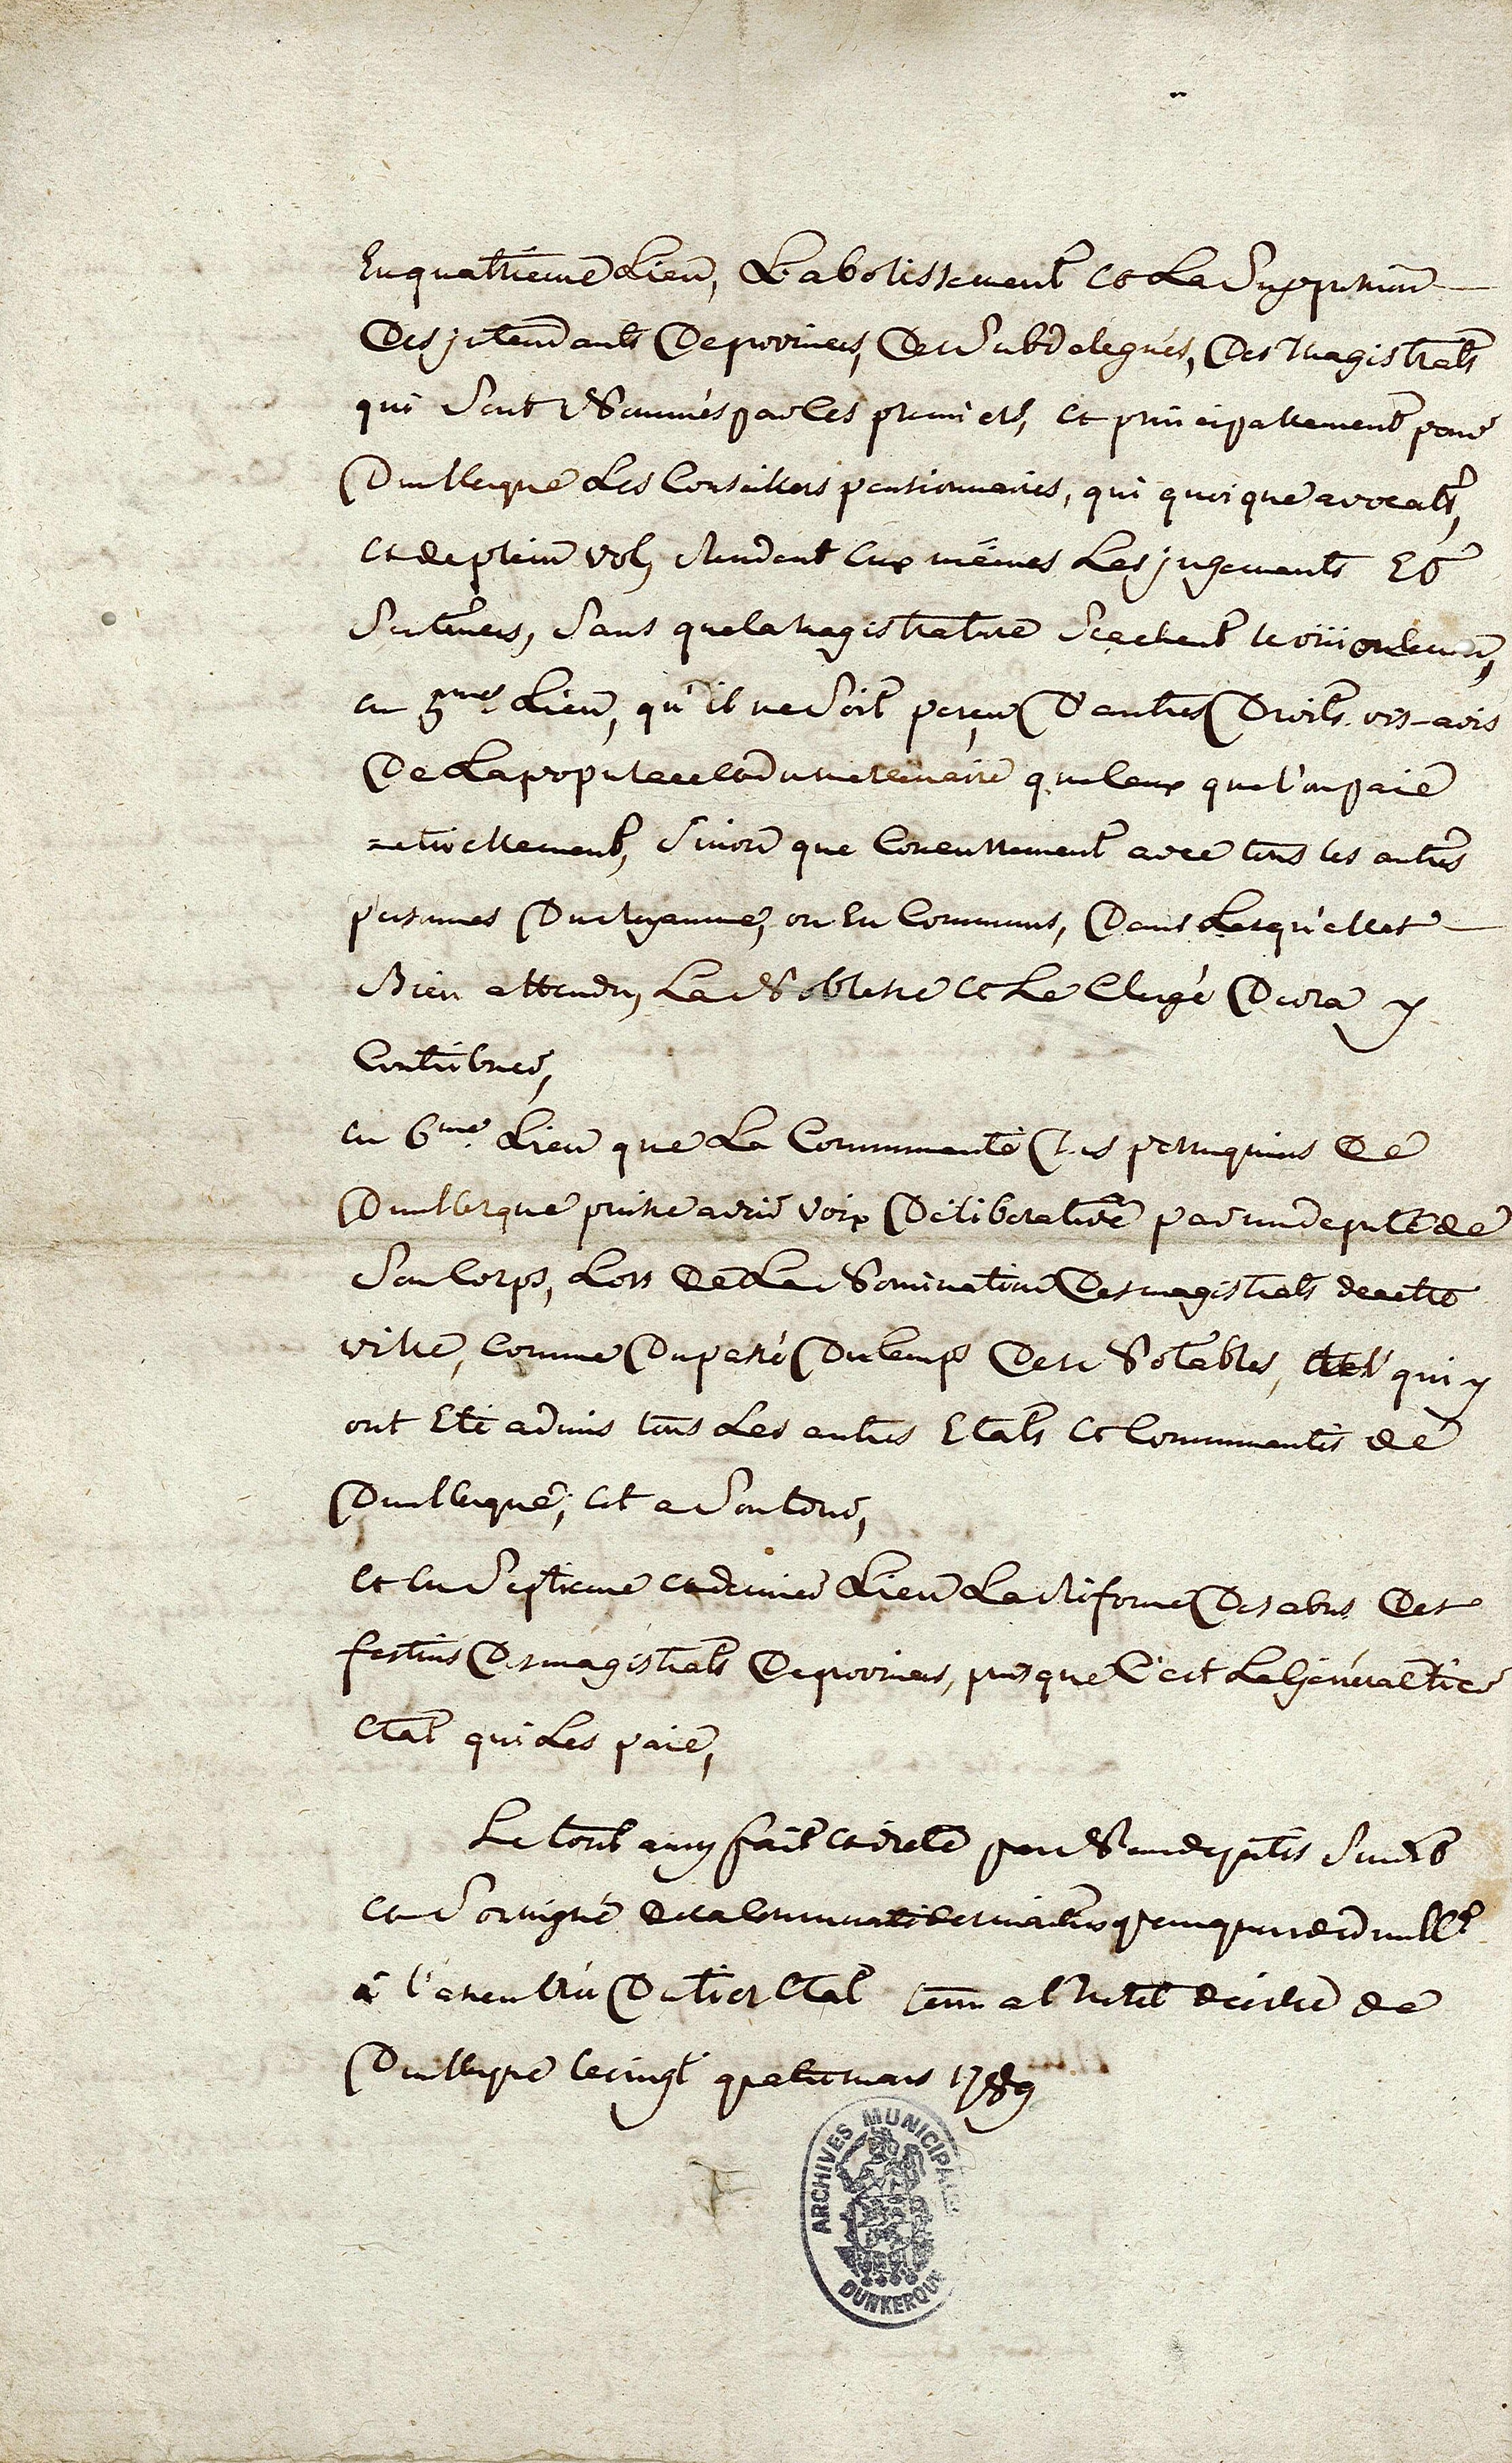 En quatriéme Lieu, L'abolissement et La Suppression
Des jntendants De provinces, Des Subdelegués, Des Magistrats
qui Sont Nommés par les premiers, et principallement pour
Dunkerque Les Conseillers pensionnaires, qui quoique avocats,
et de plein vol, Rendent eux mêmes Les jugements Et
Sentences, Sans que la Magistrature Scachent
en 5me Lieu, qu'il ne Soit perçeu D'autres Droits vis-avis
De La populace et du mercenaire que ceux que l'on paie
actuellement, Sinon que Concurrement avec tous les autres
personnes Du Royaume, ou En Communs, Dans Lesqu'elles
Bien attendu, La Noblesse et Le Clergé Devra y
Contribuer,
en 6me Lieu que La Communauté Des perruquiers De
Dunkerque puisse avoir voix Déliberative par un deputé de
Son Corps, Lors De La Nomination Des magistrats de cette
ville, Comme Du passé Du temps Des Notables, qui y
ont Eté admis tous Les autres Etats et Communautés de
Dunkerque, et a Son tour,
et en Septieme et dernier Lieu La Réforme Des abus Des
festins Des magistrats De provinces, puisque C'est Le Général tier
Etat qui Les paie,
Le tout ainsy fait et arreté par Nous deputés
et Soussigné de la Communauté des maitres perruquiers de dunkerque
à l'assemblée Du tier Etat tenu a l'hotel de ville de
Dunkerque le vingt quatre mars 1789
ARCHIVES MUNICIPALES
DUNKERQUE